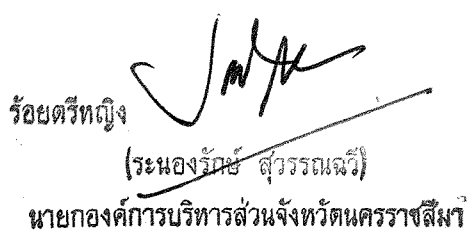 ร้อยตรีหญิง
(ระนองรักษ์ สุวรรณฉวี)
นายกองค์การบริหารส่วนจังหวัดนครราชสีมา